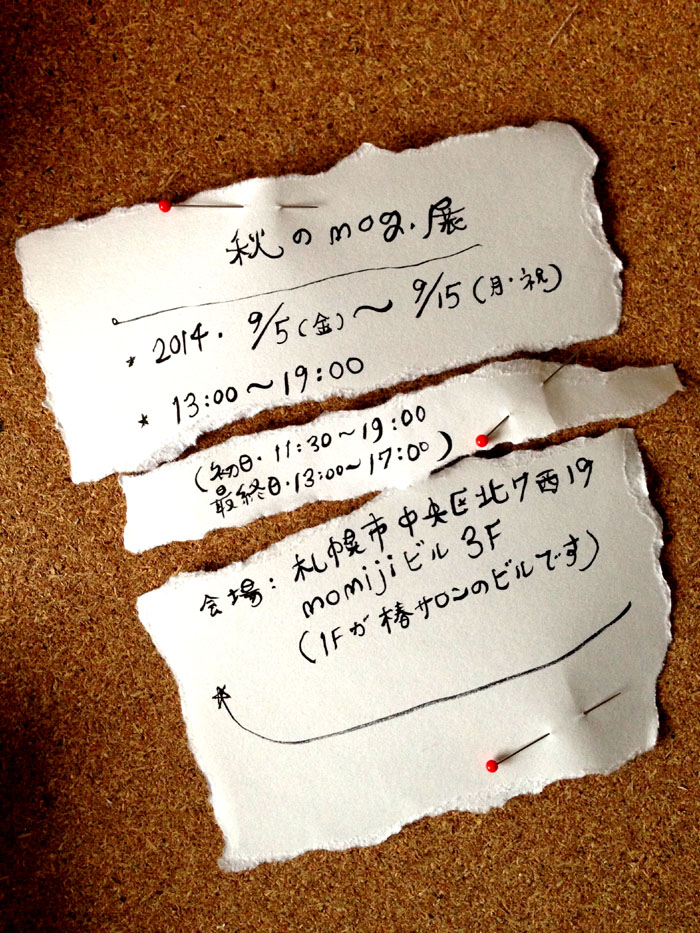 秋のmog.展
* 2014. 9/5(金)〜9/15(月・祝)
* 13:00〜19:00
(初日・11:30〜19:00
最終日・13:00〜17:00)
会場:札幌市中央区北7西19
momijiビル 3F
(1Fが椿サロンのビルです)